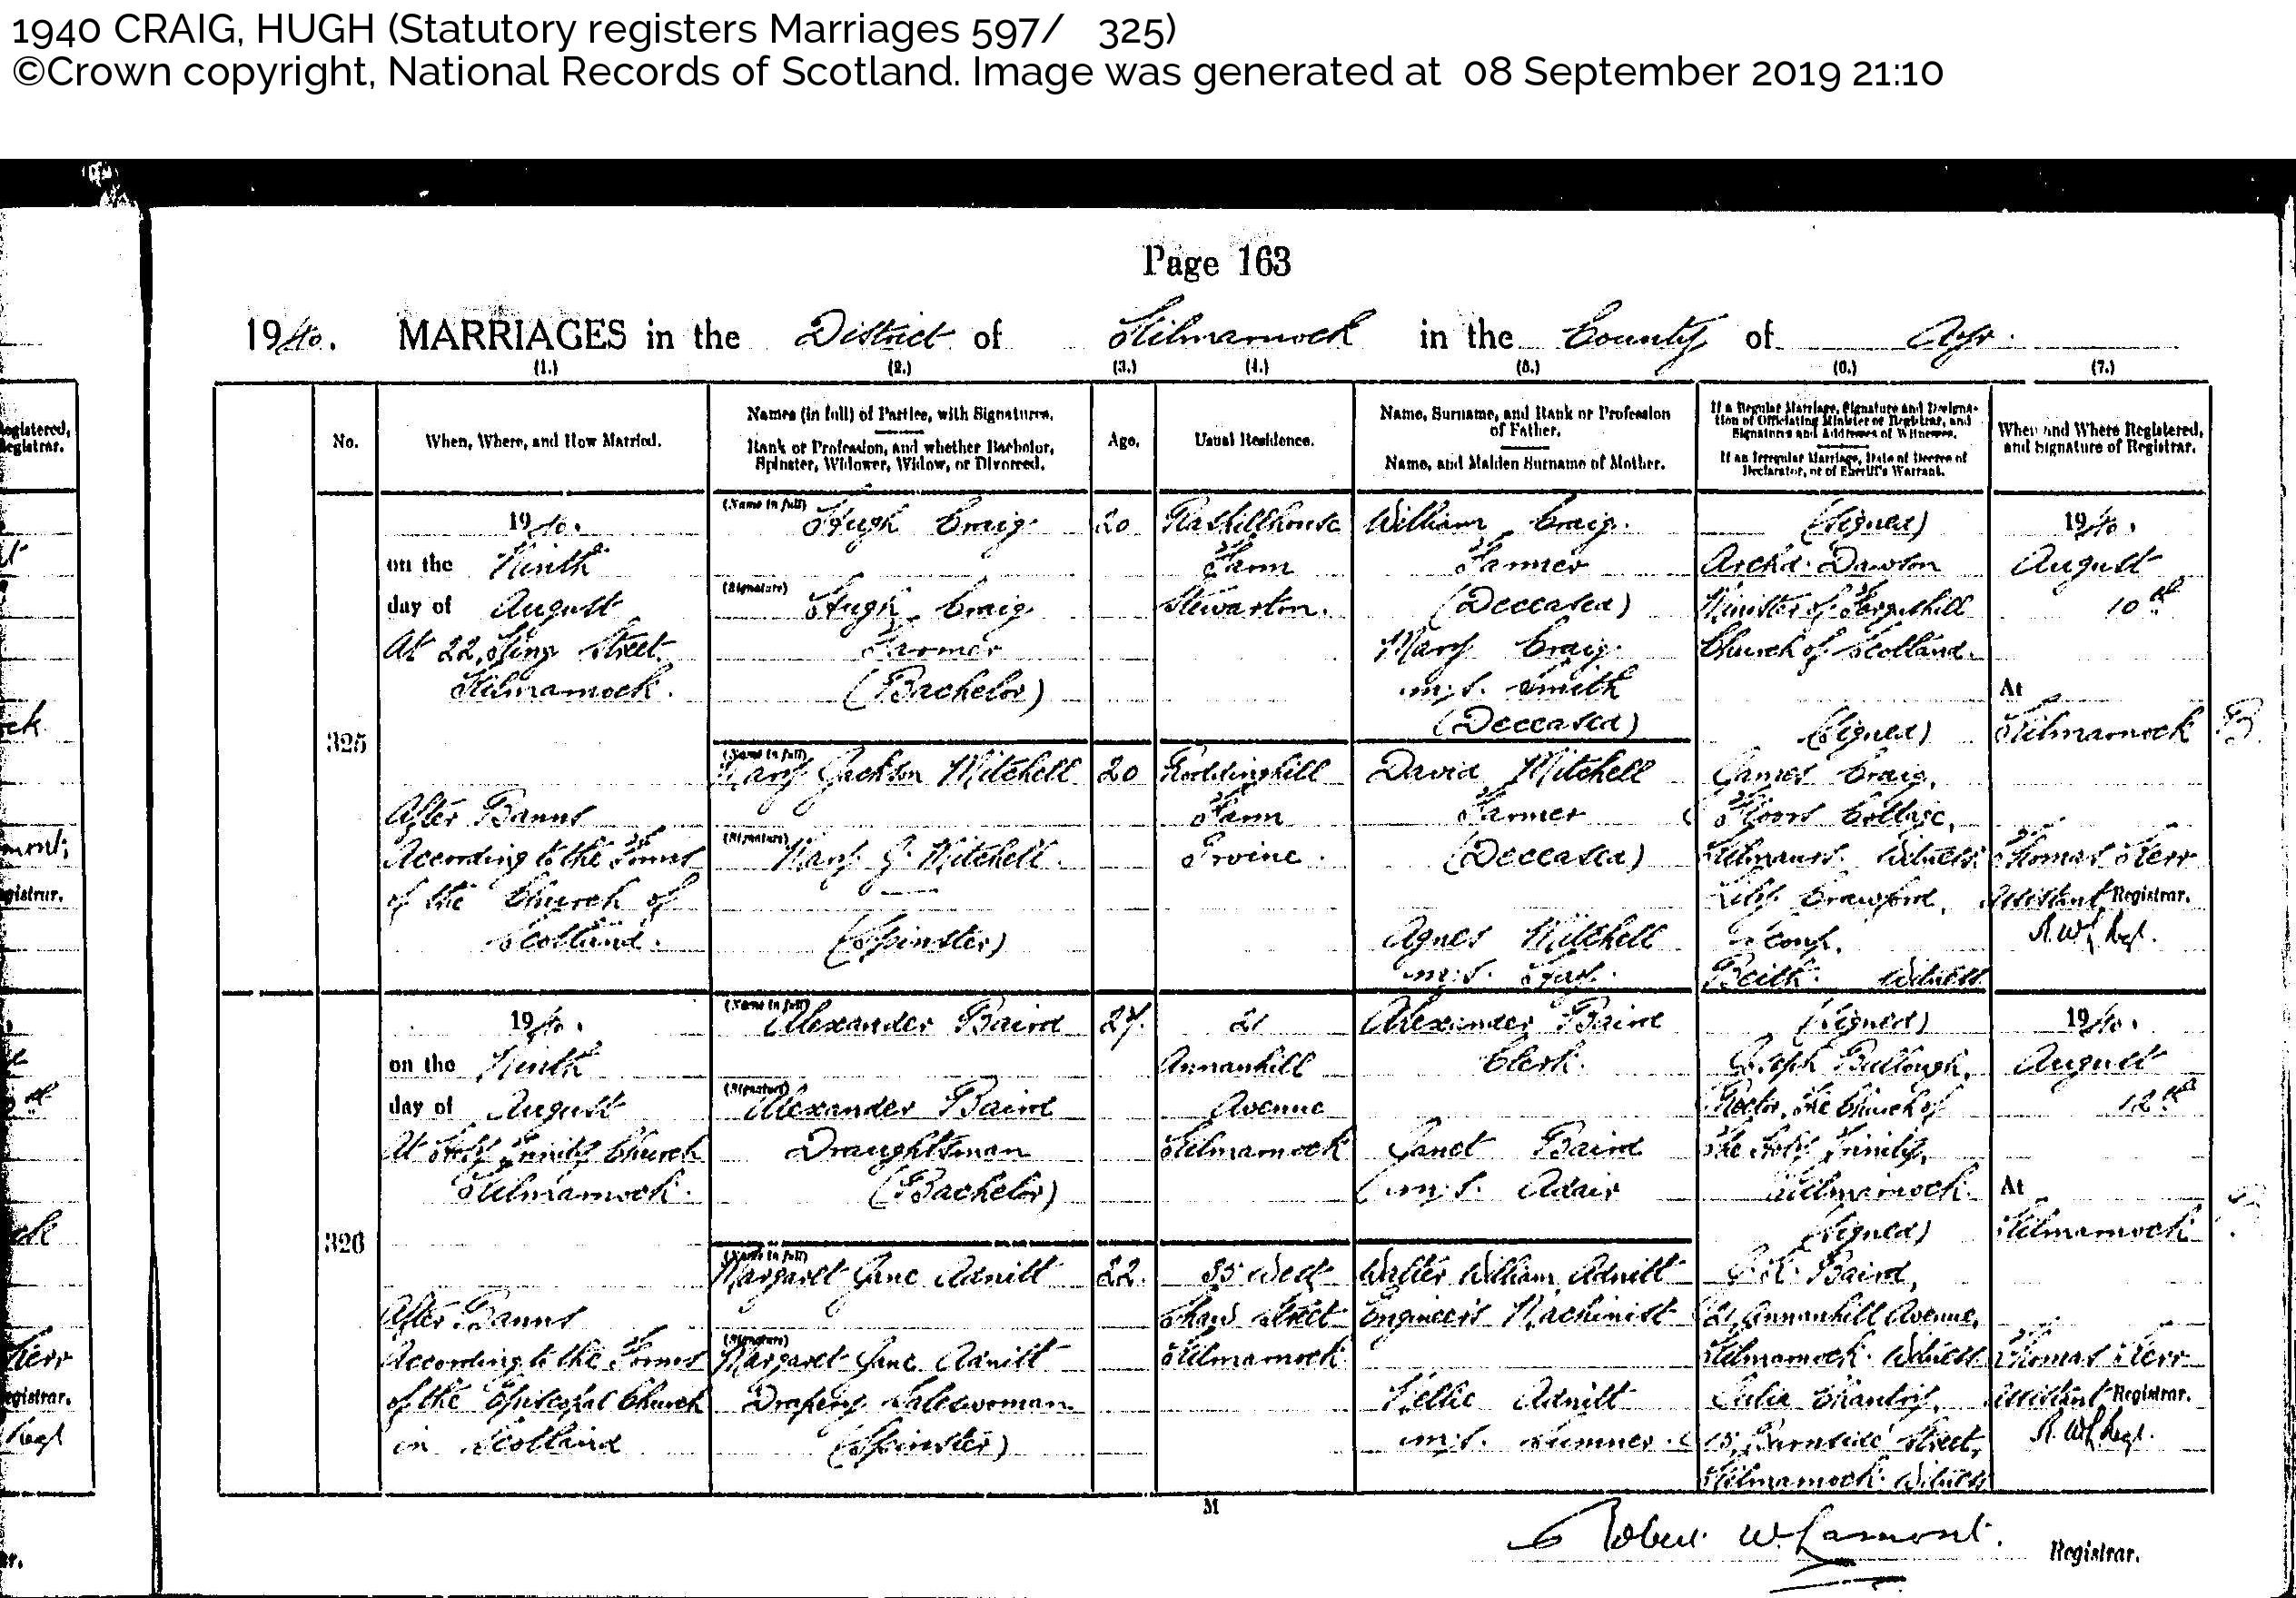 1940 CRAIG, HUGH (Statutory registers Marriages 597/ 325)
©Crown copyright, National Records of Scotland. Image was generated at 08 September 2019 21:10
Page 163
1940. MARRIAGES in the District of Kilmarnock in the County of Ayr.
(1.) (2.) (3.) (4.) (5.) (6.) (7.)
No.
When, Where, and How Married.
Names (in full) of Parties, with Signatures.
Rank or Profession, and whether Bachelor,
Spinster, Widower, Widow, or Divorced.
Age.
Usual Residence.
Name, Surname, and Rank or Profession
of Father.
Name, and Maiden Surname of Mother.
If a Regular Marriage, Signature and Designa-
tion of Officiating Minister or Registrar, and
Signatures and Addresses of Witnesses.
If an Irregular Marriage, Date of Decree of
Declarator, or of Sheriff's Warrant.
When and Where Registered,
and Signature of Registrar.
325
1940.
on the Ninth
day of August
At 22, King Street
Kilmarnock.
After Banns
According to the Forms
of the Church of
Scotland.
(Name in full)
Hugh Craig
(Signature)
Hugh Craig
Farmer
(Bachelor)
20
Farm
Stewarton.
William Craig.
Farmer
(Deceased)
Mary Craig.
m.s. Smith
(Deceased)
(Name in full)
Mary Jackson Mitchell
(Signature)
Mary J. Mitchell.
(Spinster)
20
Farm
Irvine.
David Mitchell
Farmer
(Deceased)
Agnes Mitchell
m.s. Hay.
(Signed)
Archd. Dawson
Minister of Fergushill
Church of Scotland.
(Signed)
James Craig,
Floors Cottage,
Kilmaurs. Witness.
Lily Crawford,
Beith. Witness
1940.
August
10th
At
Kilmarnock
Thomas Kerr
Assistant Registrar.
R.W.L. Regr.
326
1940.
on the Ninth
day of August
At Holy Trinity Church
Kilmarnock.
After Banns
According to the Forms
of the Episcopal Church
in Scotland
(Name in full)
Alexander Baird
(Signature)
Alexander Baird
Draughtsman
(Bachelor)
27.
21
Annanhill
Avenue
Kilmarnock
Alexander Baird
Clerk.
Janet Baird
m.s. Adair
(Name in full)
Margaret Jane Adnitt
(Signature)
Margaret Jane Adnitt
Drapery Saleswoman
(Spinster)
22.
35 West
Shaw Street
Kilmarnock
Walter William Adnitt
Engineer's Machinist
Nellie Adnitt
m.s. Sumner.
(Signed)
Joseph Bullough,
Rector, The Church of
The Holy Trinity,
Kilmarnock.
(Signed)
Baird,
21, Annanhill Avenue,
Kilmarnock. Witness
Julia Chantry,
15, Burnside Street,
Kilmarnock. Witness
1940.
August
12th
At
Kilmarnock
Thomas Kerr
Assistant Registrar.
R.W.L. Regr.
M
Robert W. Lamont. Registrar.